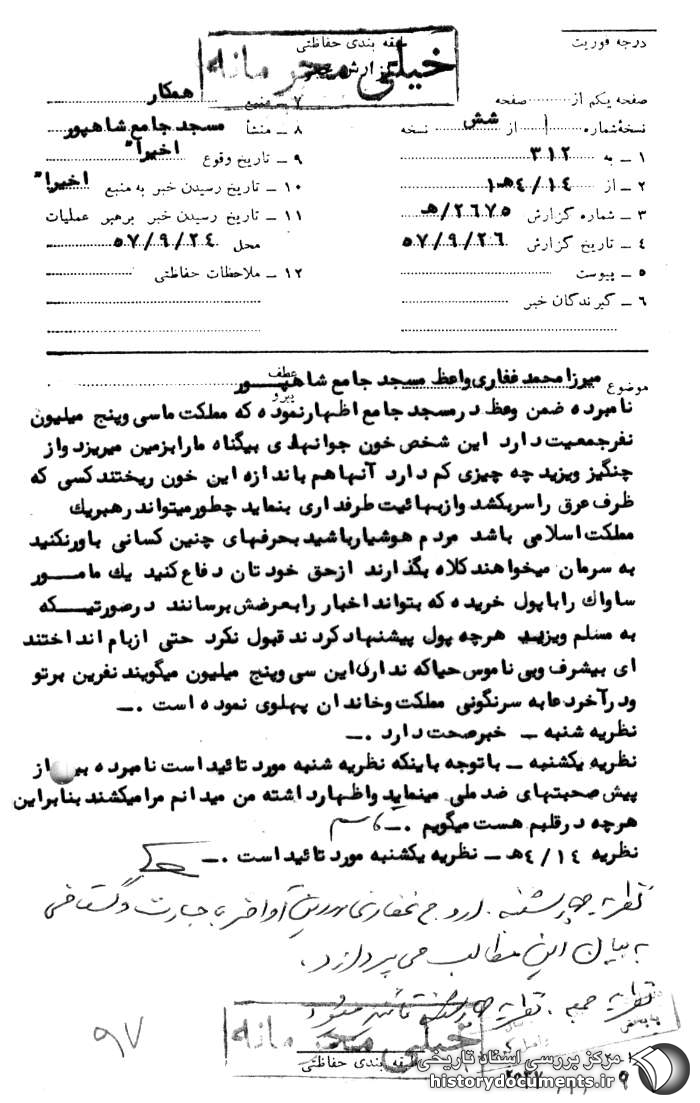 درجه فوریت
طبقه بندی حفاظتی
گزارش خبر
خیلی محرمانه
صفحه یکم از صفحه
نسخهٔ شماره ۱ از شش نسخه
۱ ـ به ۳۱۲
۲ ـ از ۴/۱۴هـ۱
۳ ـ شماره گزارش ۲۶۷۵/هـ
۴ ـ تاریخ گزارش ۵۷/۹/۲۶
۵ ـ پیوست
۶ ـ گیرندگان خبر
۷ ـ منبع همکار
۸ ـ منشأ مسجد جامع شاهپور
۹ ـ تاریخ وقوع اخیراً
۱۰ ـ تاریخ رسیدن خبر به منبع اخیراً
۱۱ ـ تاریخ رسیدن خبر برهبر عملیات
محل ۵۷/۹/۲۴
۱۲ ـ ملاحظات حفاظتی
موضوع میرزا محمد غفاری واعظ مسجد جامع شاهپور
عطف
پیرو
نامبرده ضمن وعظ در مسجد جامع اظهار نموده که مملکت ما سی و پنج میلیون
نفر جمعیت دارد این شخص خون جوانهای بیگناه ما را بزمین میریزد و از
چنگیز و یزید چه چیزی کم دارد آنها هم باندازه این خون ریختند کسی که
ظرف عرق را سر بکشد و از بهائیت طرفداری بنماید چطور میتواند رهبر یک
مملکت اسلامی باشد مردم هوشیار باشید بحرفهای چنین کسانی باور نکنید
به سرمان میخواهند کلاه بگذارند از حق خودتان دفاع کنید یک مامور
ساواک را با پول خریده که بتواند اخبار را بعرضش برسانند در صورتیکه
به مسلم و یزید هرچه پول پیشنهاد کردند قبول نکرد حتی از بام انداختند
ای بیشرف و بی ناموس حیا که نداری این سی و پنج میلیون میگویند نفرین بر تو
و در آخر دعا به سرنگونی مملکت و خاندان پهلوی نموده است .ـ
نظریه شنبه ـ خبر صحت دارد .ـ
نظریه یکشنبه ـ با توجه باینکه نظریه شنبه مورد تائید است نامبرده بیش از
پیش صحبتهای ضد ملی مینماید و اظهار داشته من میدانم مرا میکشند بنابراین
هرچه در قلبم هست میگویم .ـ
نظریه ۴/۱۴هـ ـ نظریه یکشنبه مورد تائید است .ـ
نظریه چهارشنبه . غفاری اواخر با جسارت و گستاخی
به بیان این مطالب می پردازد .
نظریه جمعه . نظریه چهارشنبه تائید میشود
۹۷
خیلی محرمانه
طبقه بندی حفاظتی
مرکز بررسی اسناد تاریخی
historydocuments.ir